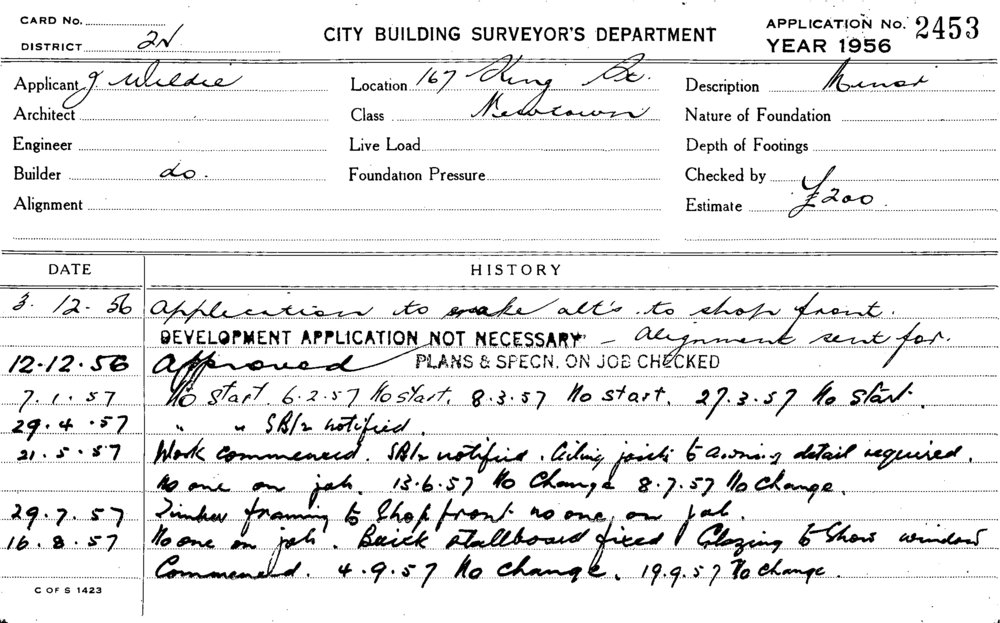 CARD No.
DISTRICT 2N
CITY BUILDING SURVEYOR'S DEPARTMENT
APPLICATION No. 2453
YEAR 1956
Applicant J Wildie Location 167 King St. Description Minor
Architect Class Newtown Nature of Foundation
Engineer Live Load Depth of Footings
Builder do. Foundation Pressure Checked by
Alignment Estimate £200
DATE HISTORY
3. 12. 56 Application to make alt's to shop front.
DEVELOPMENT APPLICATION NOT NECESSARY - Alignment sent for.
12.12.56 Approved PLANS & SPECN. ON JOB CHECKED
7.1.57 No start. 6.2.57 No start. 8.3.57 No start. 27.3.57 No start.
29.4.57 " " SB/2 notified.
21.5.57 Work commenced. SB/2 notified. Ceiling joists to awning detail required.
No one on job. 13.6.57 No Change 8.7.57 No Change.
29.7.57 Timber framing to Shop front no one on job.
16.8.57 No one on job. Brick stallboard fixed Glazing to Show window
Commenced. 4.9.57 No change. 19.9.57 No change.
C OF S 1423